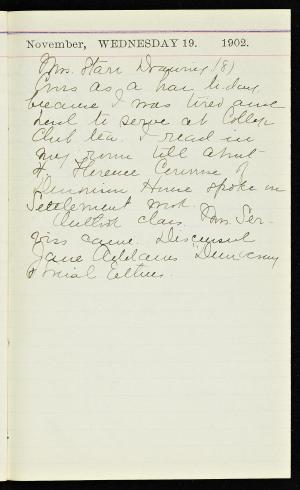 November, WEDNESDAY 19. 1902.
Mrs. Starr Drawing (8)
as a to-day
because I was tired and
had to serve at College
Club tea. I read in
my room till about
4. Florence of
House spoke on
Settlement work.
class. Mrs. Ser-
viss came. Discussed
Jane Addams "Democracy
& Social Ethics.